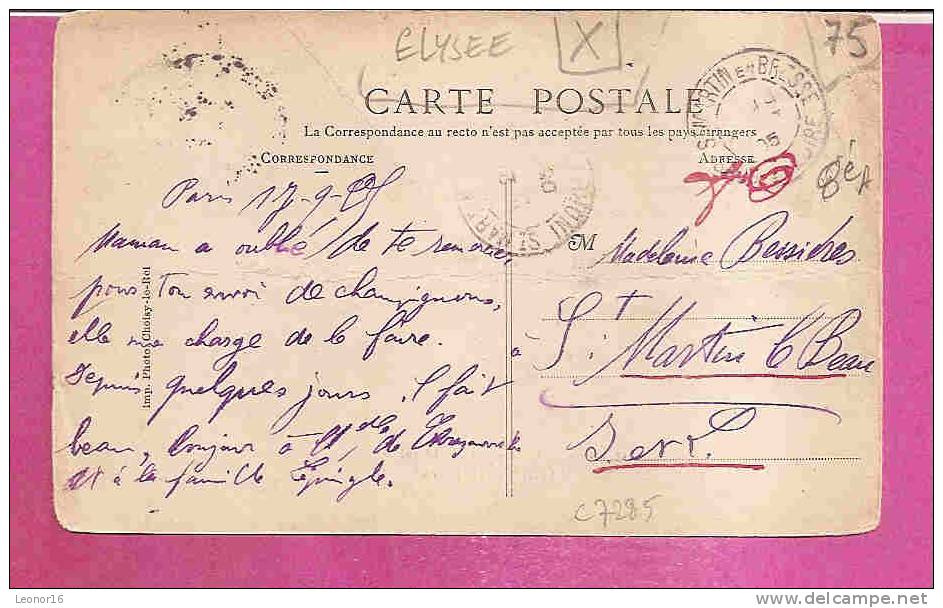 ELYSEE X 75
CARTE POSTALE
La Correspondance au recto n'est pas acceptée par tous les pays étrangers
CORRESPONDANCE
ADRESSE
8è
Paris 17-9-05
Maman a oublié de te remercier
pour ton envoi de champignons,
elle me charge de le faire.
Depuis quelques jours il fait
beau, bonjour à Mde de
et à la famille Epingle.
M Madeleine Bessières
à St Martin le Beau
I. et L.
Imp. Photo Choisy-le-Roi
C7285
- Leonor16
http://www.delcampe.net